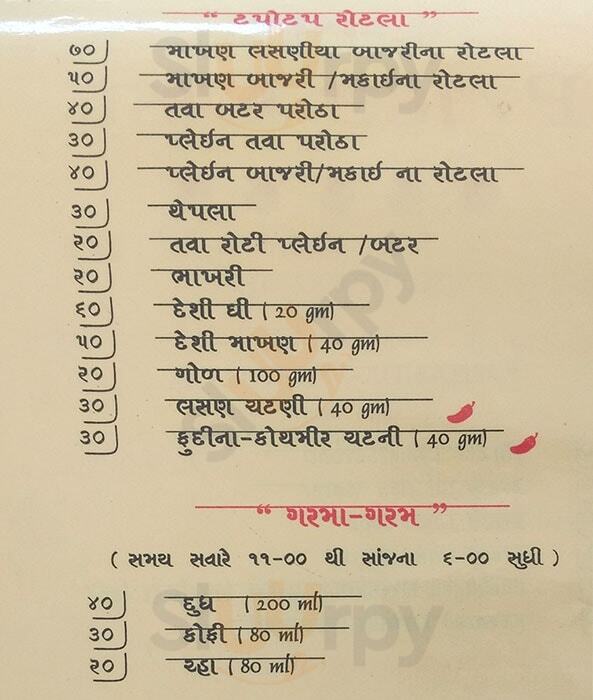 “ ટપોટપ રોટલા ”
૭૦ માખણ લસણીયા બાજરીના રોટલા
૫૦ માખણ બાજરી /મકાઈના રોટલા
૪૦ તવા બટર પરોઠા
૩૦ પ્લેઈન તવા પરોઠા
૪૦ પ્લેઈન બાજરી/મકાઈ ના રોટલા
૩૦ થેપલા
૨૦ તવા રોટી પ્લેઈન /બટર
૨૦ ભાખરી
૬૦ દેશી ઘી ( 20 gm)
૫૦ દેશી માખણ ( 40 gm)
૨૦ ગોળ ( 100 gm)
૩૦ લસણ ચટણી ( 40 gm)
૩૦ ફુદીના-કોથમીર ચટની ( 40 gm)
“ ગરમા-ગરમ ”
( સમય સવારે ૧૧-૦૦ થી સાંજના ૬-૦૦ સુધી )
૪૦ દુધ ( 200 ml)
૩૦ કોફી ( 80 ml)
૨૦ ચ્હા ( 80 ml)
Slurrpy
Slurrpy
Slurrpy